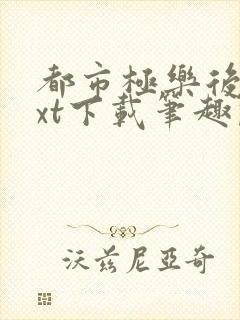 都市極樂後
xt下載筆趣
沃茲尼亞奇